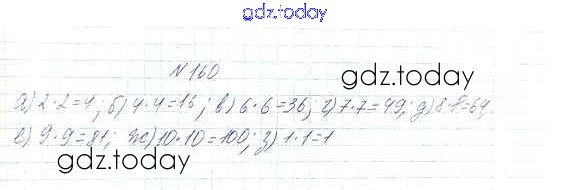 gdz.today
N 160
gdz.today
а) 2·2=4; б) 4·4=16; в) 6·6=36; г) 7·7=49; д) 8·8=64
е) 9·9=81; ж) 10·10=100; з) 1·1=1
gdz.today